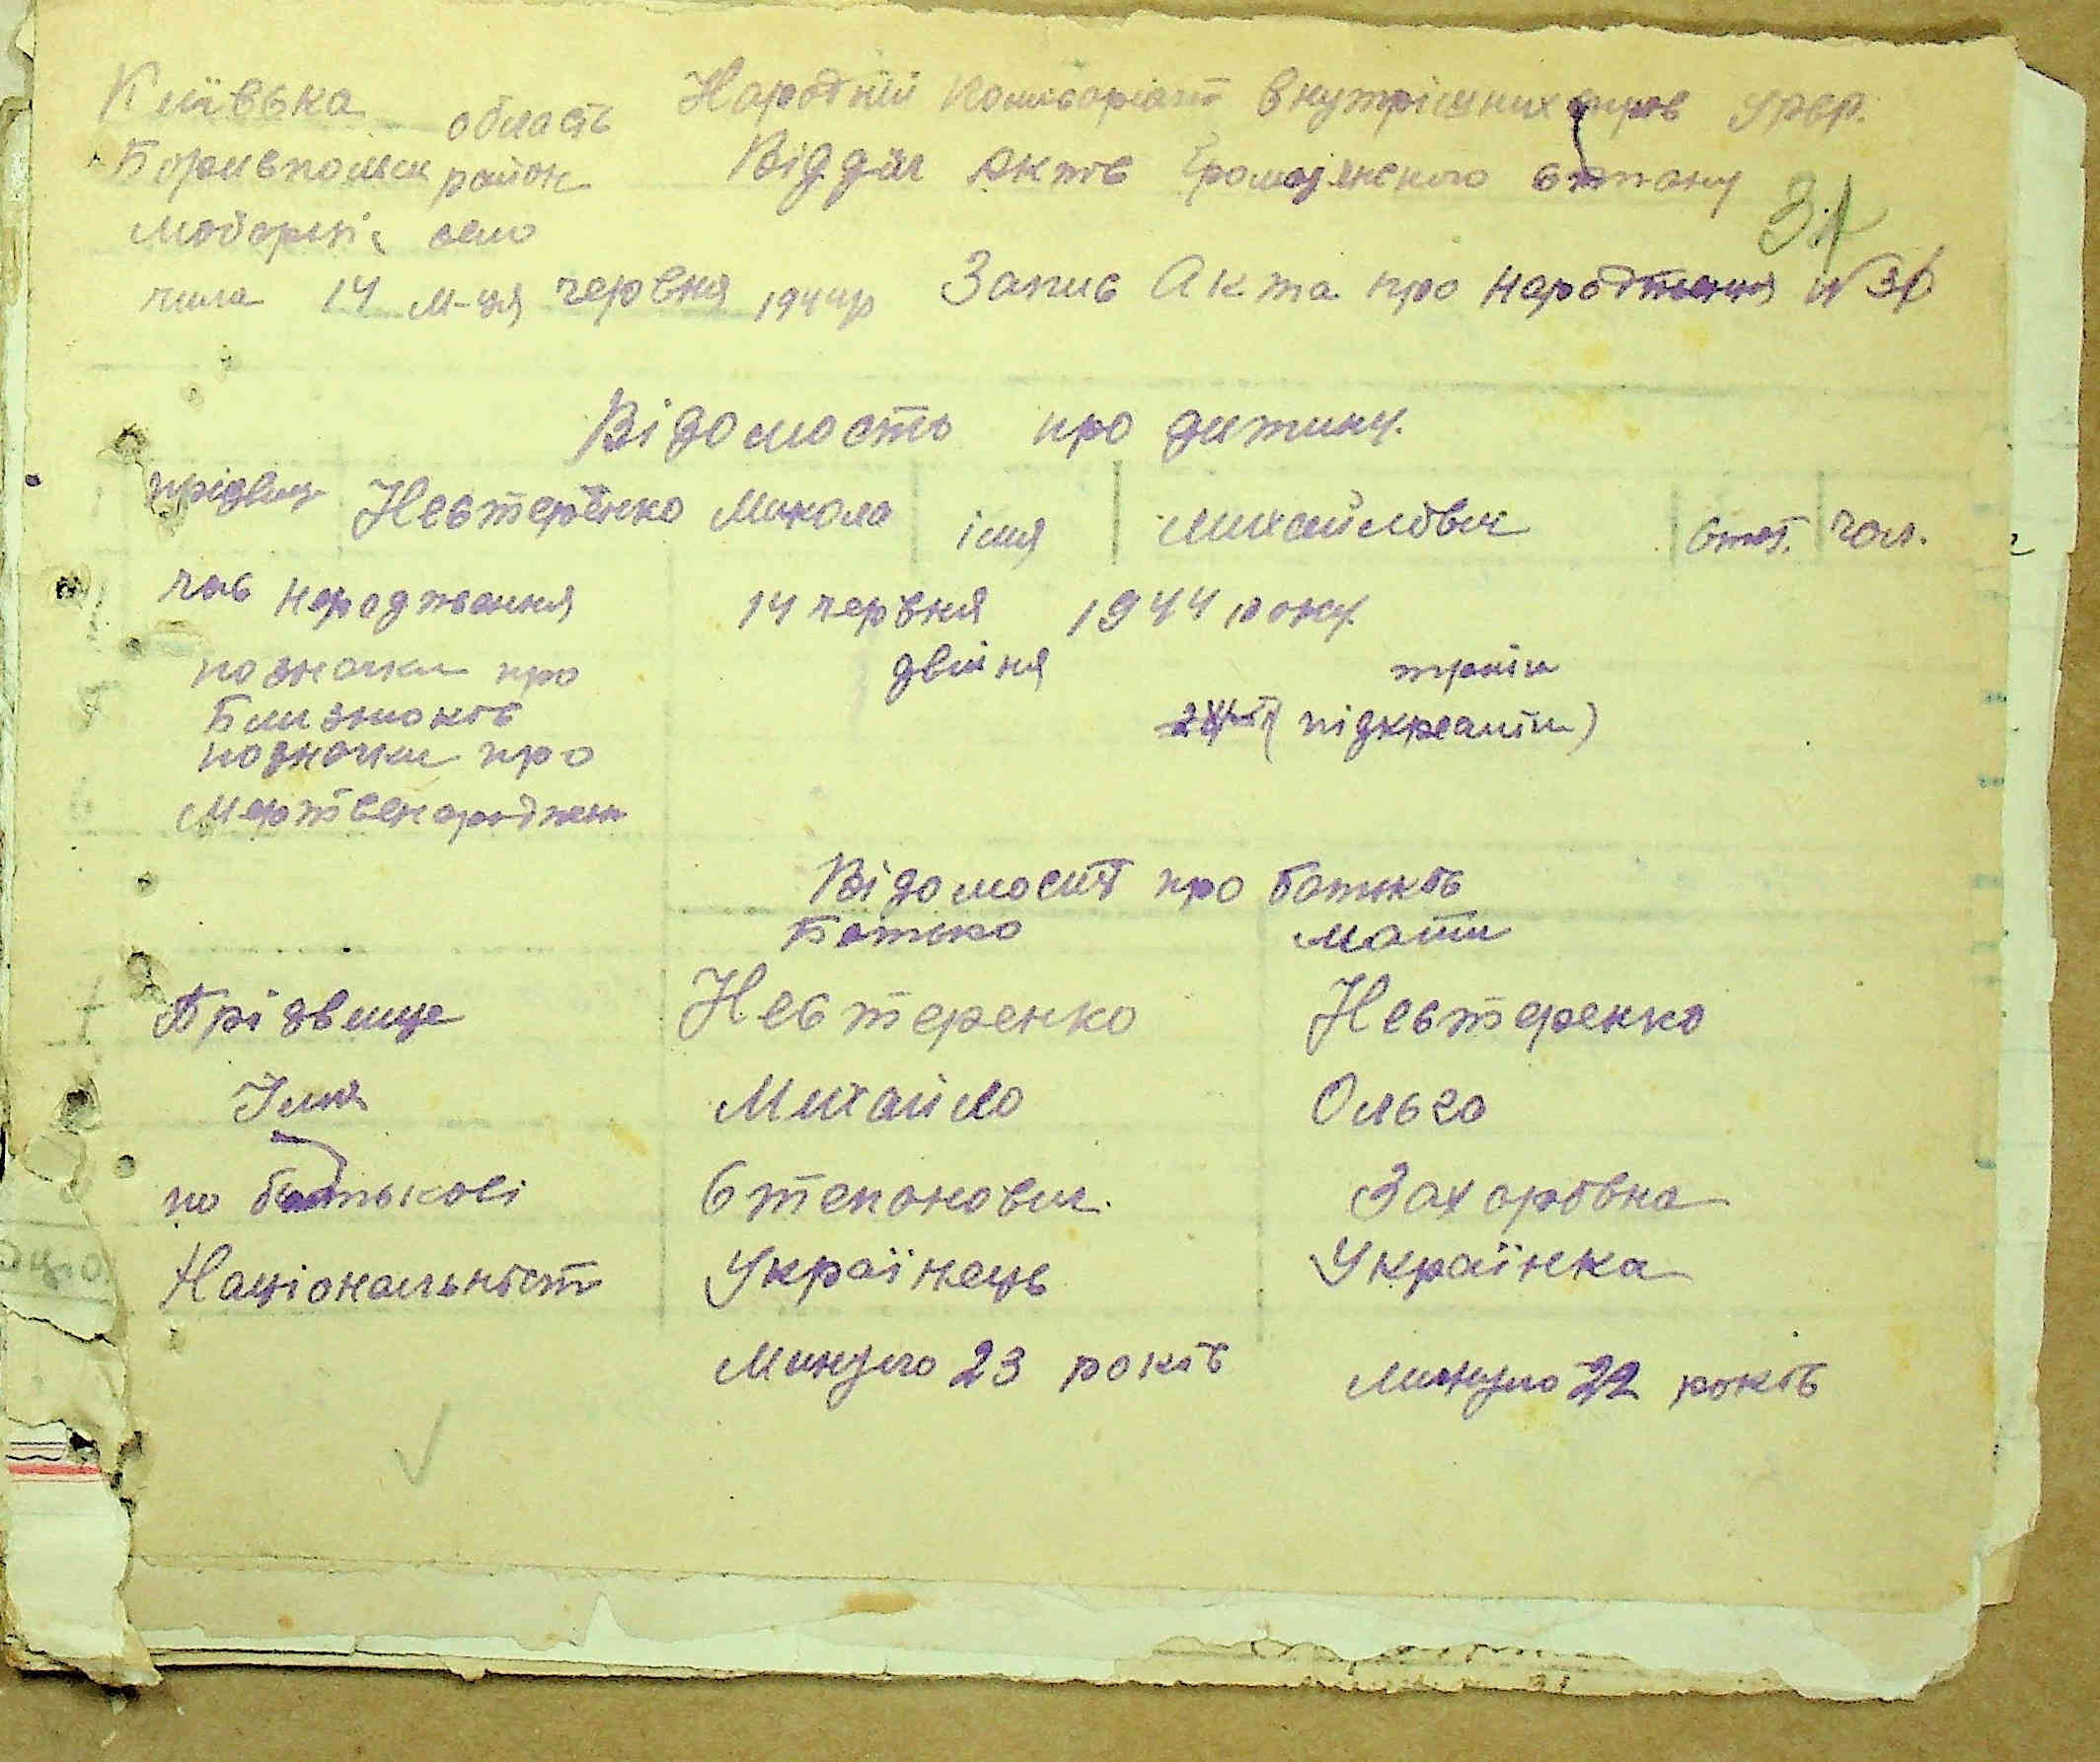 Київська область Народній Комісаріят внутрішних справ УРСР.
Бориспольск район Відділ Актів Громадянского стану
село 31
числа 14 м-ця червня 1944 р Запис Акта про народження N 31
Відомость про дитину.
прізвищ Нестеренко Микола імя Михайлович стат. чол.
час народження 14 червня 1944 року
позначки про двійня трійн
Близнюків (підкресліт)
позначки про
Мертвенароджен
Відомості про батьків
Батько мати
Прізвище Нестеренко Нестеренко
Імя Михайло Ольга
по батькові Степанович. Захаровна
Національність Українець Українка
Минуло 23 років минуло 22 років